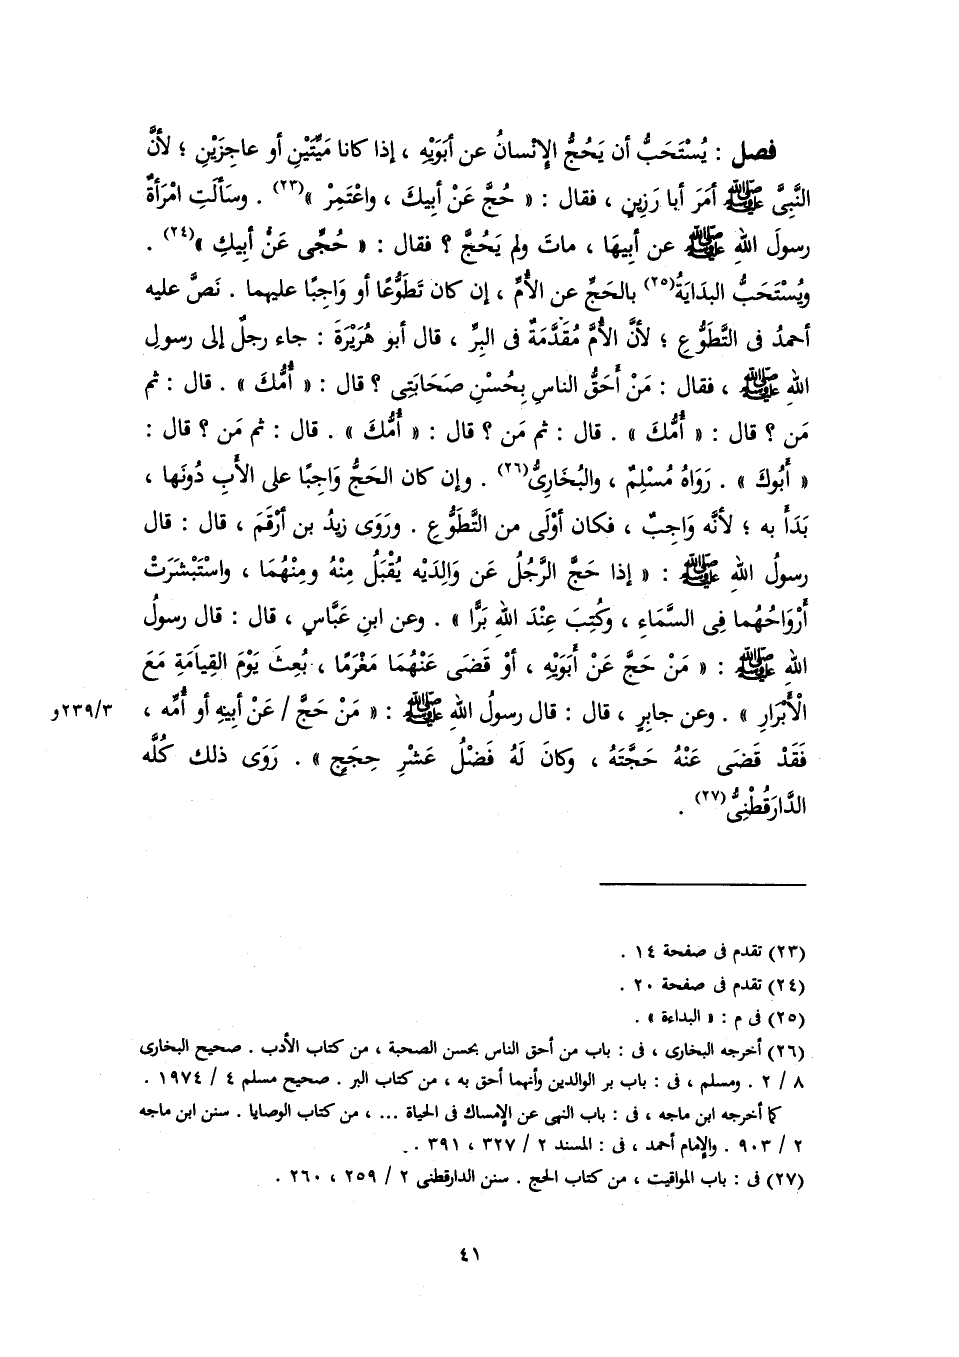 فصل : يُسْتَحَبُّ أن يَحُجَّ الإِنْسانُ عن أبَوَيْهِ ، إذا كانا مَيِّتَيْنِ أو عاجِزَيْنِ ؛ لأنَّ
النَّبِىَّ ﷺ أمَرَ أبا رَزِينٍ ، فقال : « حُجَّ عَنْ أبِيكَ ، واعْتَمِرْ »(٢٣) . وسَألَتِ امْرَأةٌ
رسولَ اللهِ ﷺ عن أبِيهَا ، ماتَ ولم يَحُجَّ ؟ فقال : « حُجِّى عَنْ أبِيكِ »(٢٤) .
ويُسْتَحَبُّ البدَايَةُ(٢٥) بالحَجِّ عن الأُمِّ ، إن كان تَطَوُّعًا أو وَاجِبًا عليهما . نَصَّ عليه
أحمدُ فى التَّطَوُّعِ ؛ لأنَّ الأُمَّ مُقَدَّمَةٌ فى البِرِّ ، قال أبو هُرَيْرَةَ : جاء رجلٌ إلى رسولِ
اللهِ ﷺ ، فقال : مَنْ أَحَقُّ الناسِ بِحُسْنِ صَحَابَتِى ؟ قال : « أُمُّكَ » . قال : ثم
مَن ؟ قال : « أُمُّكَ » . قال : ثم مَن ؟ قال : « أُمُّكَ » . قال : ثم مَن ؟ قال :
« أَبُوكَ » . رَوَاهُ مُسْلِمٌ ، والبُخَارِىُّ(٢٦) . وإن كان الحَجُّ وَاجِبًا على الأَبِ دُونَها ،
بَدَأَ به ؛ لأنَّه وَاجِبٌ ، فكان أوْلَى من التَّطَوُّعِ . ورَوَى زيدُ بن أرْقَمَ ، قال : قال
رسولُ اللهِ ﷺ : « إذا حَجَّ الرَّجُلُ عَن وَالِدَيْه يُقْبَلُ مِنْهُ ومِنْهُمَا ، واسْتَبْشَرَتْ
أَرْوَاحُهُما فِى السَّمَاءِ ، وكُتِبَ عِنْدَ اللهِ بَرًّا » . وعن ابنِ عَبَّاسٍ ، قال : قال رسولُ
اللهِ ﷺ : « مَنْ حَجَّ عَنْ أَبَوَيْهِ ، أوْ قَضَى عَنْهُمَا مَغْرَمًا ، بُعِثَ يَوْمَ القِيامَةِ مَعَ
الْأَبْرَارِ » . وعن جابِرٍ ، قال : قال رسولُ اللهِ ﷺ : « مَنْ حَجَّ / عَنْ أبِيهِ أو أُمِّه ، ٢٣٩/٣و
فَقَدْ قَضَى عَنْهُ حَجَّتَهُ ، وكانَ لَهُ فَضْلُ عَشْرِ حِجَجٍ » . رَوَى ذلك كُلَّه
الدَّارَقُطْنِىُّ(٢٧) .
(٢٣) تقدم فى صفحة ١٤ .
(٢٤) تقدم فى صفحة ٢٠ .
(٢٥) فى م : « البداءة » .
(٢٦) أخرجه البخارى ، فى : باب من أحق الناس بحسن الصحبة ، من كتاب الأدب . صحيح البخارى
٨ / ٢ . ومسلم ، فى : باب بر الوالدين وأنهما أحق به ، من كتاب البر . صحيح مسلم ٤ / ١٩٧٤ .
كما أخرجه ابن ماجه ، فى : باب النهى عن الإمساك فى الحياة ... ، من كتاب الوصايا . سنن ابن ماجه
٢ / ٩٠٣ . والإمام أحمد ، فى : المسند ٢ / ٣٢٧ ، ٣٩١ .
(٢٧) فى : باب المواقيت ، من كتاب الحج . سنن الدارقطنى ٢ / ٢٥٩ ، ٢٦٠ .
٤١